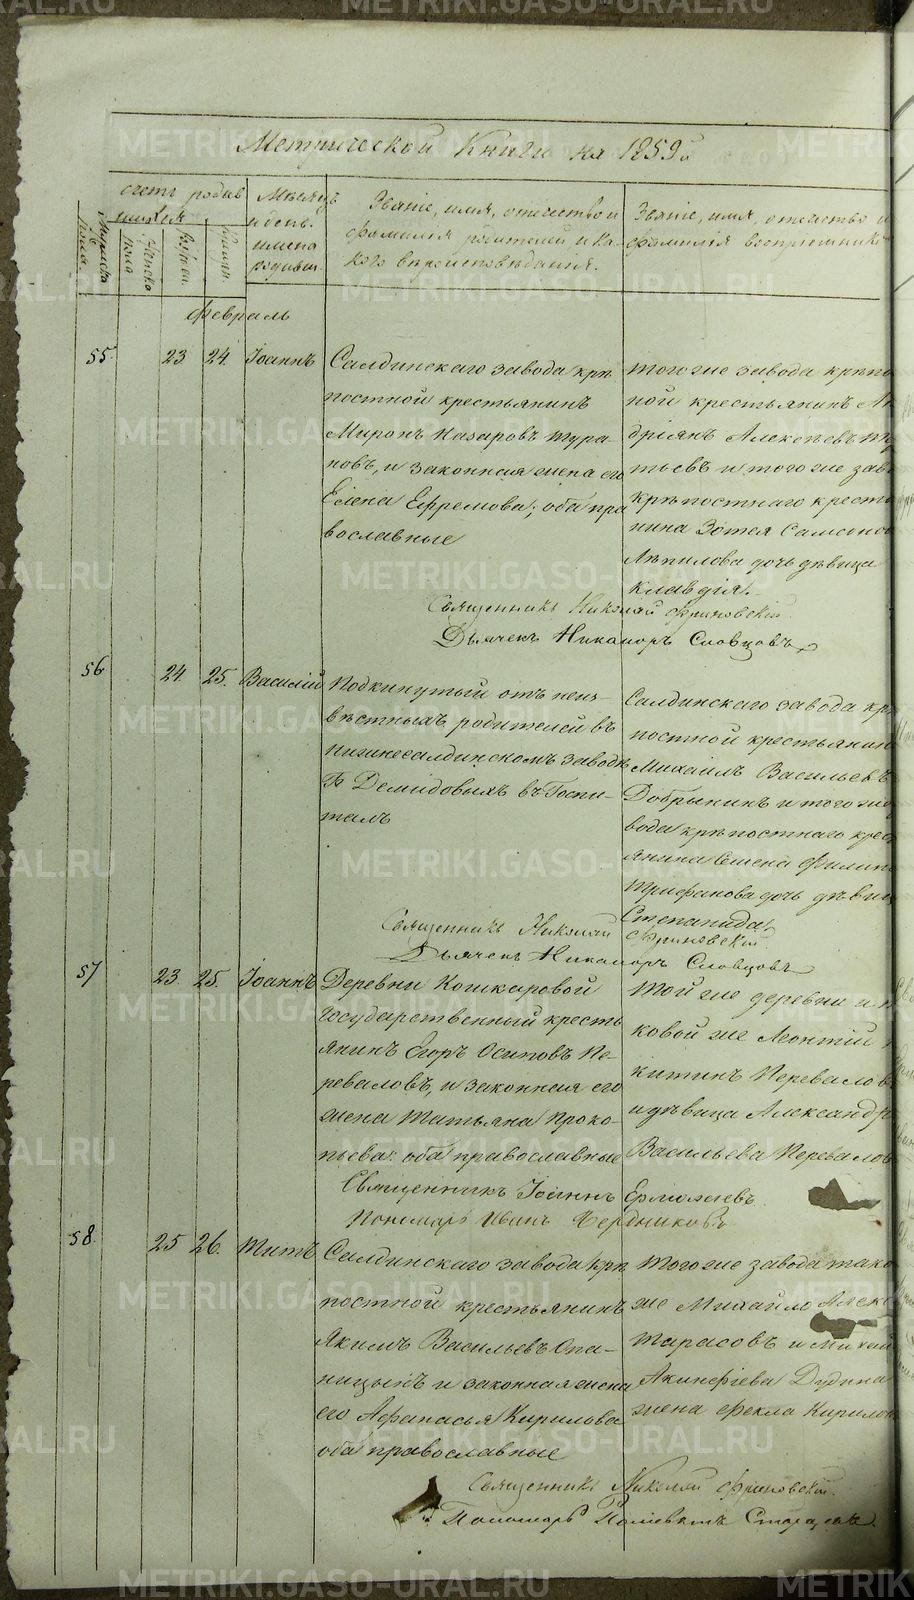 Метрической Книги на 1859й
счетъ родив
шихся
Мужеска
пола
Женска
пола
рожден.
крещен.
Мѣсяцъ
и день.
имена
родивш.
Званіе, имя, отчество и
фамилія родителей и ка-
кого вѣроисповѣданія.
Званіе, имя, отчество и
фамилія воспріемник
Февраль
55.
23
24.
Іоаннъ
Салдинскаго завода крѣ
постной крестьянинъ
Миронъ Назаровъ Тура-
новъ, и законная жена его
Елена Ефремова; оба пра
вославные
того же завода крѣпо
ной крестьянинъ Ан
дріянъ Алексѣевъ
тьевъ и того же зав
крѣпостнаго кресть
нина Зотея Самсоно
Лѣпилова дочь дѣвица
Клавдія.
Священникъ Николай Фриновскій
Дьячекъ Никаноръ Словцовъ
56
24.
25.
Василій
Подкинутый отъ неиз-
вѣстныхъ родителей въ
Нижнесалдинскомъ заводѣ
Демидовыхъ въ Госпи-
таль
Салдинскаго завода кр
постной крестьянин
Михаилъ Васильевъ
Добрынинъ и того же
вода крѣпостнаго крес
янина Семена Филип
Трифанова дочь дѣви
Степанида
Священникъ Николай Фриновскій
Дьячекъ Никаноръ Словцовъ
57
23.
25.
Іоаннъ
Деревни Кошкаровой
государственный кресть
янинъ Егоръ Осиповъ Пе-
реваловъ, и законная его
жена Татьяна Проко-
пьева: оба православные
Той же деревни
ковой же Леонтій
китинъ Перевалов
и дѣвица Александр
Васильева Перевалов
Священникъ Іоаннъ Ермолаевъ.
Пономарь Иванъ Бердниковъ
58.
25
26.
Титъ
Салдинскаго завода крѣ
постной крестьянинъ
Якимъ Васильевъ Опа-
ницынъ и законная жена
его Афанасья Кирилова
оба православные
Того же завода тако
же Михайло Алекс
Тарасовъ и
Акинфіева Дудина
жена Фекла Кирилов
Священникъ Николай Фриновскій.
Пономарь
METRIKI.GASO-URAL.RU